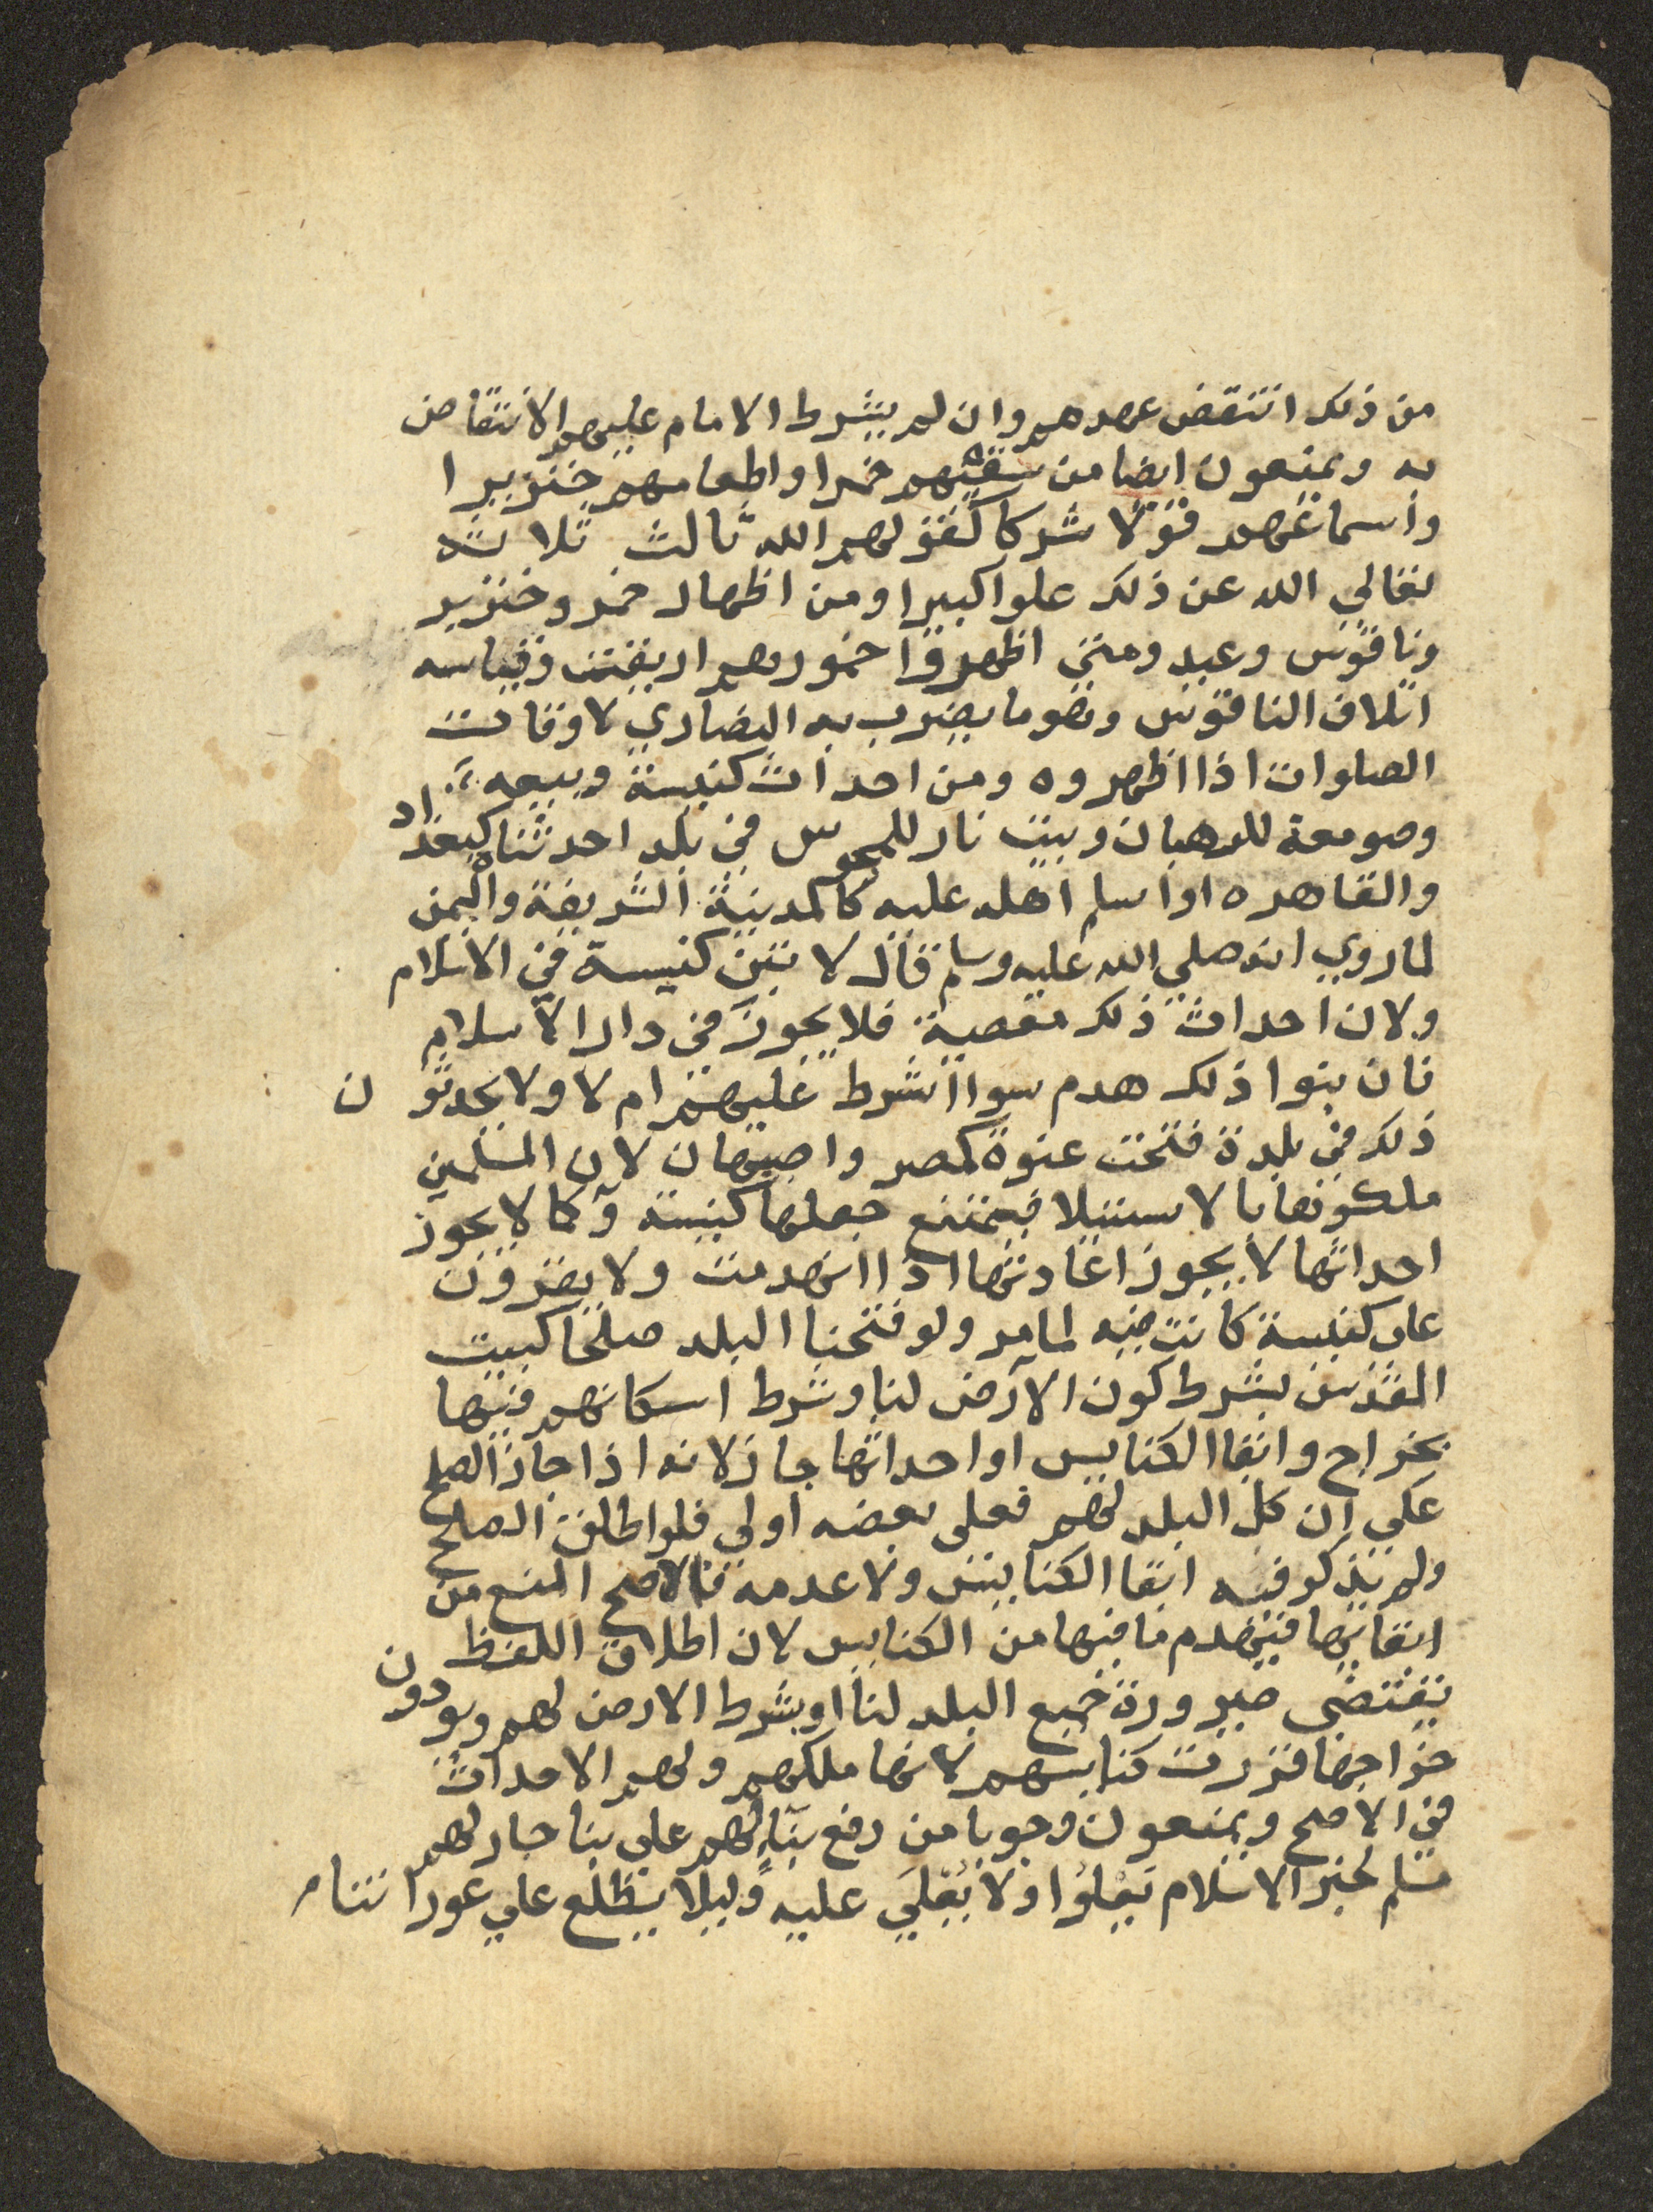 من ذلك انتقض عهدهم وان لم يشرط الامام عليهم الانتقاض
به ويمنعون ايضا من سقيهم خمرا واطعامهم خنزيرا
واسماعهم قولا شركا كقولهم الله ثالث ثلاثه
تعالي الله عن ذلك علوا كبيرا ومن اظهار خمر وخنزير
وناقوس وعيد ومتي اظهروا خمورهم اريقت وقياسه
اتلاف الناقوس وهو ما يضرب به النصاري لاوقات
الصلوات اذا اظهروه ومن احداث كنيسة وبيعه
وصومعة للرهبان وبيت نار للمجوس في بلد احدثناه كبغداد
والقاهره او اسلم اهله عليه كالمدينة الشريفة واليمن
لما روي انه صلي الله عليه وسلم قال لا تبن كنيسة في الاسلام
ولان احداث ذلك معصية فلا يجوز في دار الاسلام
فان بنوا ذلك هدم سواا شرط عليهم ام لا ولا يحدثون
ذلك في بلدة فتحت عنوة كمصر واصبهان لان المسلمين
ملكوها بالاستيلا فيمتنع جعلها كنيسة وكما لا يجوز
احداثها لا يجوز اعادتها اذا انهدمت ولا يقرون
علي كنيسة كانت فيه لما مر ولو فتحنا البلد صلحا كبيت
المقدس بشرط كون الارض لنا وشرط اسكانهم فيها
بخراج وابقا الكنايس او احداثها جاز لانه اذا جاز الصلح
علي ان كل البلد لهم فعلي بعضه اولي فلو اطلق الصلح
ولم يذكر فيه ابقا الكنايس ولا عدمه فالاصح المنع من
ابقايها فيهدم ما فيها من الكنايس لان اطلاق اللفظ
يقتضي صيرورة جميع البلد لنا او بشرط الارض لهم ويودون
خراجها قررت كنايسهم لانها ملكهم ولهم الاحداث
في الاصح ويمنعون وجوبا من رفع بنآء لهم علي بنا جار لهم
مسلم لخبر الاسلام يَعْلُوا ولا يُعْلَي عليه وليلا يطلع علي عوراتنا